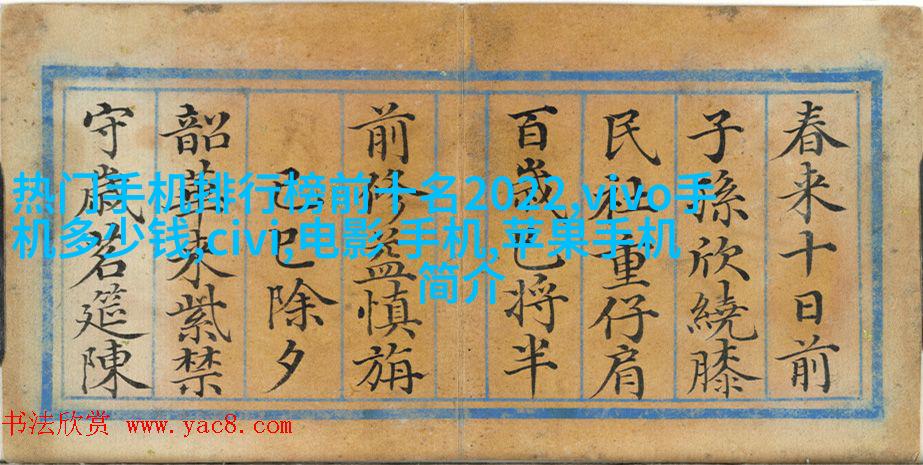 春来十日前
子孫欣繞膝
民社重仔肩
百歲已将半
前修益慎旃
己巳除夕
韶華来紫禁
守歲茗筵陳
热门手机排行榜前十名2022,vivo手
机多少钱,civi,电影 手机,苹果手机
简介
书法欣赏 www.yac8.com